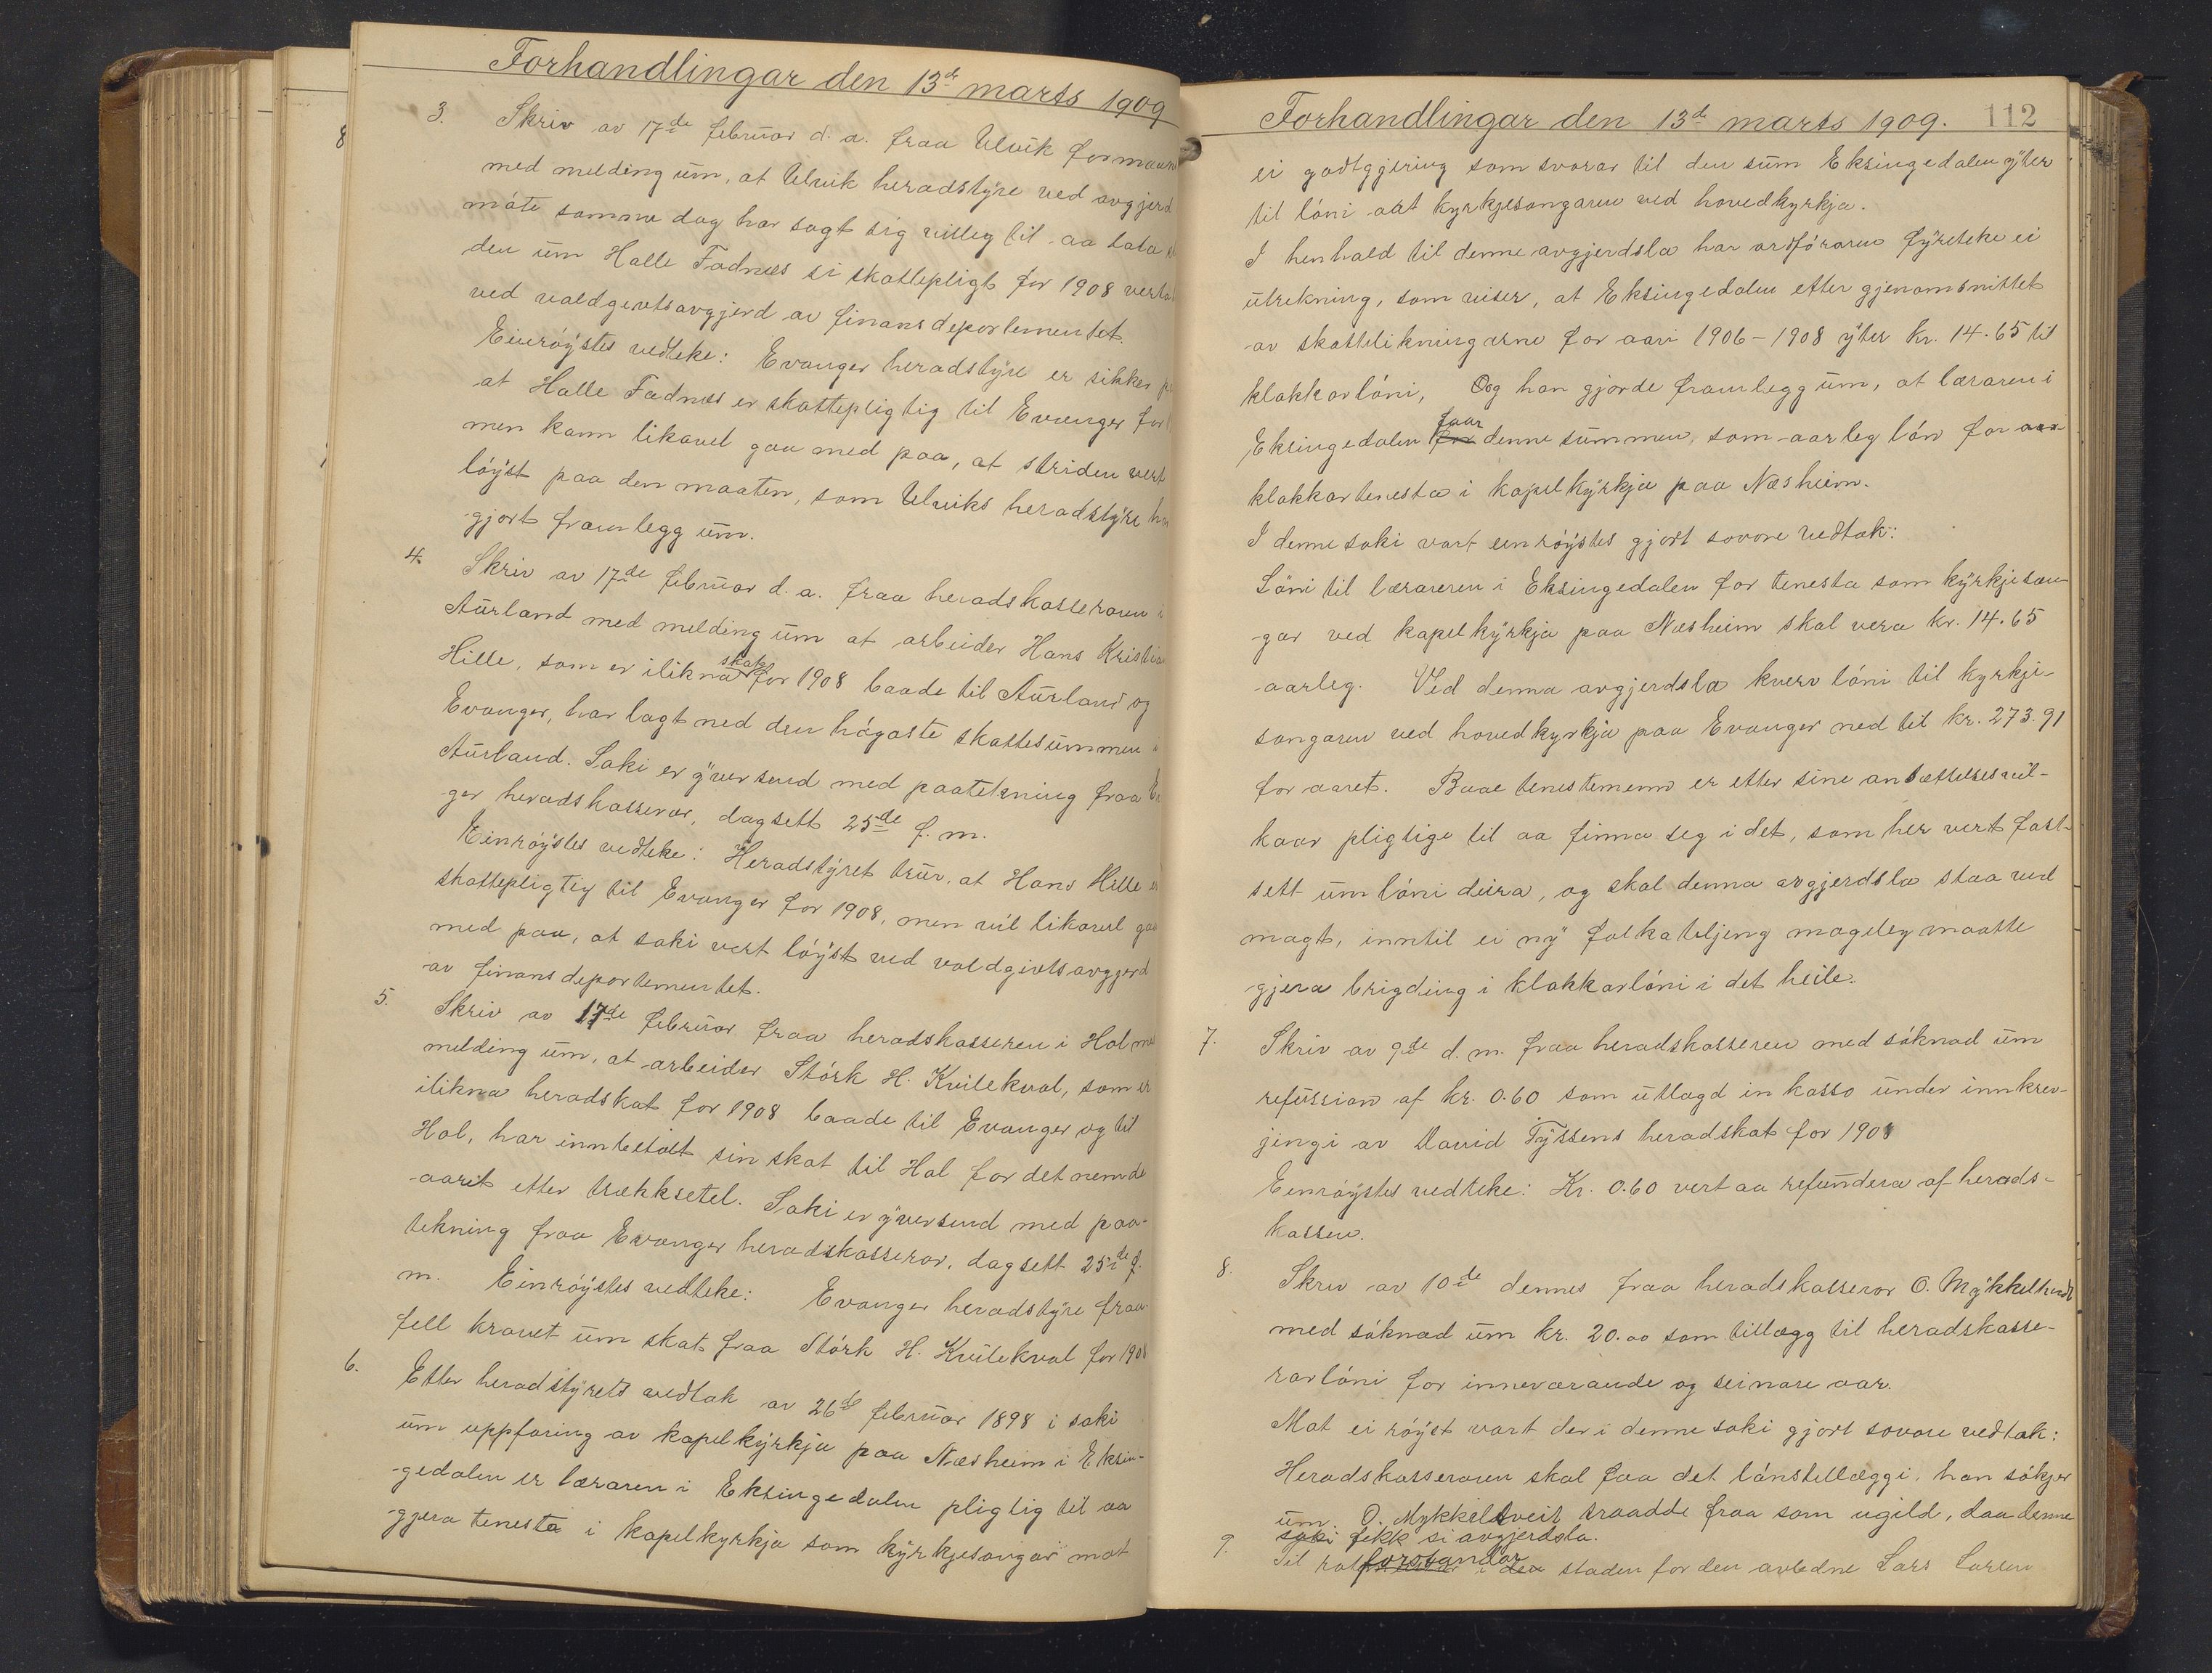 Forhandlingar den 13de marts 1909
3. Skriv av 17de februar d. a. fraa Ulvik formann
med melding um, at Ulvik heradstyre ved avgjerd
móte samme dag har sagt sig villeg til aa lata
den um Halle Fadnes si skattepligt for 1908 verta
ved valdgevtsavgjerd av finansdepartementet.
Einróystes vedteke: Evanger heradstyre er sikker
at Halle Fadnes er skattepligtig til Evanger for
men kann likavel gaa med paa, at striden vert
lóyst paa den maaten, som Ulviks heradstyre
gjort framlegg um.
4. Skriv av 17de februar d. a. fraa heradskasseraren i
Aurland med melding um at arbeider Hans Kristian
Hille, som er ilikna skat for 1908 baade til Aurland og
Evanger, har lagt ned den hógaste skattesummen i
Aurland. Saki er yversend med paatekning fraa
ger heradskasserar, dagsett 25de f. m.
Einróystes vedteke: Heradstyret trur, at Hans Hille
skattepligtig til Evanger for 1908, men vil likavel gaa
med paa, at saki vert lóyst ved valdgivtsavgjerd
av finansdepartementet.
5. Skriv av 17de februar fraa heradskasseren i Hol
melding um, at arbeider Stórk H. Kvilekval, som er
ilikna heradskat for 1908 baade til Evanger og til
Hol, har innbetalt sin skat til Hol for det nemde
aaret etter trækksetel. Saki er yversend med paa-
tekning fraa Evanger heradskasserar, dagsett 25de f.
m. Einróystes vedteke: Evanger heradstyre fraa-
fell kravet um skat fraa Stórk H. Kvilekval for 1908
6. Etter heradstyrets vedtak av 26de februar 1898 i saki
um uppfóring av kapelkyrkja paa Næsheim i Eksin-
gedalen er læraren i Eksingedalen pligtig til aa
gjera tenesta i kapelkyrkja som kyrkjesongar mot
Forhandlingar den 13de marts 1909. 112
ei godtgjering som svarar til den sum Eksingedalen yter
til lóni aat kyrkjesongaren ved hovedkyrkja.
I henhald til denne avgjerdsla har ordfóraren fyreteke ei
utrekning, som viser, at Eksingedalen etter gjenomsnittet
av skattelikningarne for aari 1906-1908 yter kr. 14.65 til
klokkarlóni, Og han gjorde framlegg um, at læraren i
Eksingedalen faar denne summen, som aarleg lón for
klokkartenesta i kapelkyrkja paa Næsheim.
I denne saki vart einróystes gjort sovore vedtak:
Lóni til læraren i Eksingedalen for tenesta som kyrkjeson-
gar ved kapelkyrkja paa Næsheim skal vera kr. 14.65
aarleg. Ved denna avgjerdsla kverv lóni til kyrkje-
songaren ved hovedkyrkja paa Evanger ned til kr. 273.91
for aaret. Baae tenestemenn er etter sine ansættelsesvil-
kaar pligtige til aa finna seg i det, som her vert fast-
sett um lóni deira, og skal denna avgjerdsla staa ved
magt, inntil ei ny folketeljing mogeleg maatte
gjera brigding i klokkarlóni i det heile.
7. Skriv av 9de d. m. fraa heradskasseren med sóknad um
refusion af kr. 0.60 som utlagd inkasso under innkrev-
jingi av David Tyssens heradskat for 1908
Einróystes vedteke: Kr. 0.60 vert aa refundera af herads-
kassen.
8. Skriv av 10de dennes fraa heradskasserar O. Mykkeltvedt
med sóknad um kr. 20.00 som tillægg til heradskasse-
rarlóni for inneværande og seinare aar.
Mot ei róyst vart der i denne saki gjort sovore vedtak:
Heradskasseraren skal faa det lónstillæggi, han sókjer
um. O. Mykkeltveit traadde fraa som ugild, daa denne
saki fekk si avgjerdsla.
9. Til forstandar i staden for den avledne Lars Larsen